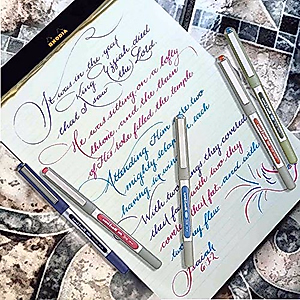 RHODIA
It was in the year
King Uzziah died
that I saw
the Lord.
He was sitting on a lofty
throne, and the train
of His robe filled the temple
Attending Him were two
mighty seraphim, each
having six wings
With two they covered
their faces, with two they
covered their feet, and with
two they flew
Isaiah
6:1-2